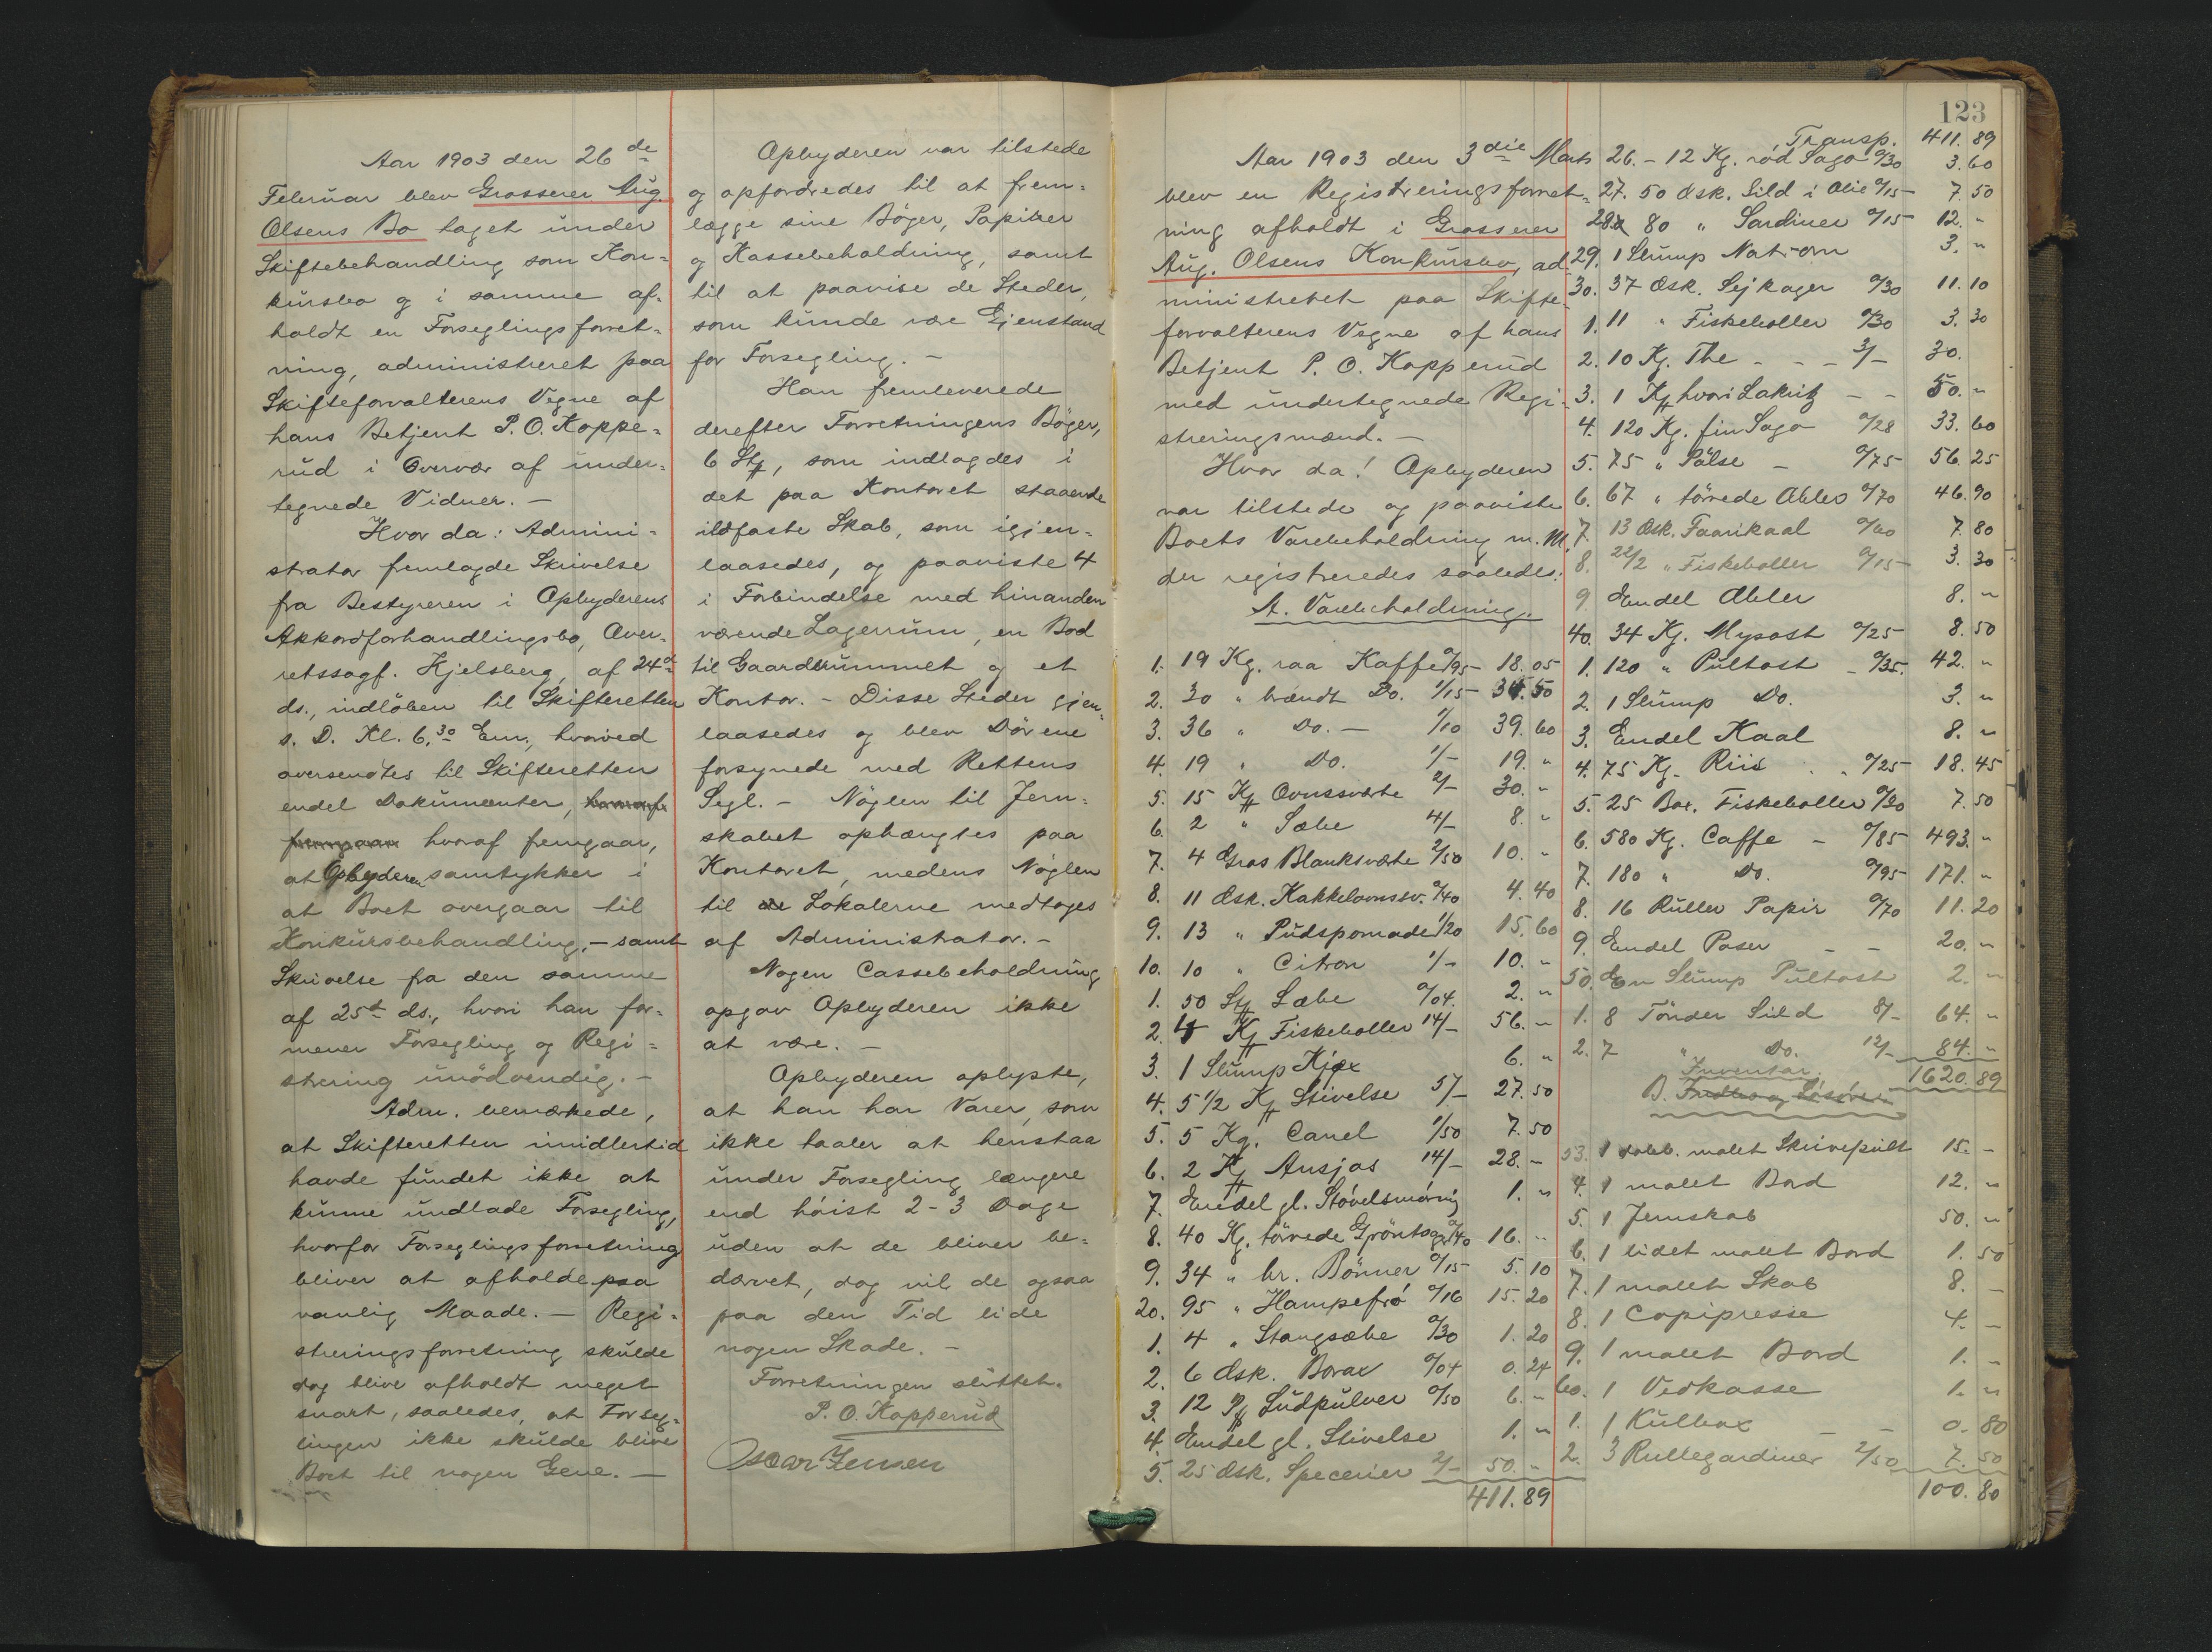 Aar 1903 den 26de
Februar blev Grosserer Aug.
Olsens Bo taget under
Skiftebehandling som Kon-
kursbo og i samme af-
holdt en Forseglingsforret-
ning, administreret paa
Skifteforvalterens Vegne af
hans Betjent P. O. Koppe-
rud i Overvær af under-
tegnede Vidner. —
Hvor da: Admini-
strator fremlagde Skrivelse
fra Bestyreren i Opbyderens
Akkordforhandlingsbo, Over-
retssagf. Hjelsberg, af 24de
ds., indløben til Skifteretten
s. D. Kl. 6.30 Em., hvorved
oversendtes til Skifteretten
endel Dokumenter,
hvoraf fremgaar,
at Opbyderen samtykker i
at Boet overgaar til
Konkursbehandling, — samt
Skrivelse fra den samme
af 25de ds., hvori han for-
mener Forsegling og Regi-
strering unödvendig. —
Adm. bemærkede,
at Skifteretten imidlertid
havde fundet ikke at
kunne undlade Forsegling,
hvorfor Forseglingsforretning
bliver at afholde paa
vanlig Maade. — Regi-
streringsforretning skulde
dog blive afholdt meget
snart, saaledes, at Forseg-
lingen ikke skulde blive
Boet til nogen Gene. —
Opbyderen var tilstede
og opfordredes til at frem-
lægge sine Böger, Papirer
og Kassebeholdning, samt
til at paavise de Steder,
som kunde være Gjenstand
for Forsegling. —
Han fremleverede
derefter Forretningens Böger,
6 Stk, som indlagdes i
det paa Kontoret staaende
ildfaste Skab, som igjen-
laasedes, og paaviste 4
i Forbindelse med hinanden
værende Lagerrum, en Bod
til Gaardsrummet og et
Kontor. — Disse Steder gjen-
laasedes og blev Dörene
forsynede med Rettens
Segl. — Nöglen til Jern-
skabet ophængtes paa
Kontoret, medens Nöglen
til de Lokalerne medtoges
af Administrator. —
Nogen Cassebeholdning
opgav Opbyderen ikke
at være. —
Opbyderen oplyste,
at han har Varer, som
ikke taaler at henstaa
under Forsegling længere
end höist 2-3 Dage
uden at de bliver be-
dærvet, dog vil de ogsaa
paa den Tid lide
nogen Skade. —
Forretningen sluttet.
P. O. Kopperud
Oscar Jensen
123
Aar 1903 den 3die Marts
blev en Registreringsforret-
ning afholdt i Grosserer
Aug. Olsens Konkursbo, ad-
ministreret paa Skifte-
forvalterens Vegne af hans
Betjent P. O. Kopperud
med undertegnede Regi-
streringsmænd. —
Hvor da! Opbyderen
var tilstede og paaviste
Boets Varebeholdning m. M.,
der registreredes saaledes:
A. Varebeholdning.
1. 19 Kg. raa Kaffe 0/95 18.05
2. 30 " brændt Do. 1/15 34.50
3. 36 " Do. — 1/10 39.60
4. 19 " Do. 1/- 19. "
5. 15 Ks Ovnssværte 2/- 30. "
6. 2 " Sæbe 4/- 8. "
7. 4 Gros Blanksværte 2/50 10. -
8. 11 Æsk. Kakkelovnssv. 0/40 4.40
9. 13 " Pudspomade 1/20 15.60
10. 10 " Citron 1/- 10. -
1. 50 St Sæbe 0/04. 2. "
2. 4 Ks Fiskeboller 14/- 56. "
3. 1 Slump Kjæx 6. "
4. 5 1/2 Ks Stivelse 5/- 27.50
5. 5 Kg. Canel 1/50 7.50
6. 2 Ks Ansjos 14/- 28. -
7. Endel gl. Stövelsmöring 1. "
8. 40 Kg. törrede Gröntsager 0/40 16. "
9. 34 " br. Bönner 0/15 5.10
20. 95 " Hampefrö 0/16 15.20
1. 4 " Stangsæbe 0/30 1.20
2. 6 Æsk. Borax 0/04 0.24
3. 12 Pk Ludpulver 0/50 6. "
4. Endel gl. Stivelse 1. "
5. 25 Æsk. Specerier 2/- 50. "
411.89
Transp. 411.89
26. - 12 Kg. röd Sago 0/30 3.60
27. 50 Æsk. Sild i Olie 0/15 7.50
28. 80 " Sardiner 0/15 12. "
29. 1 Slump Natron 3. "
30. 37 Æsk. Sejkager 0/30 11.10
1. 11 " Fiskeboller 0/30 3.30
2. 10 Kg. The - - - 3/- 30.
3. 1 Ks hvori Lakritz - - 50. "
4. 120 Kg. fin Sago 0/28 33.60
5. 75 " Pölse - 0/75 56.25
6. 67 " törrede Æbler 0/70 46.90
7. 13 Æsk. Faarikaal 0/60 7.80
8. 22/2 " Fiskeboller 0/15 3.30
9. Endel Æbler 8. "
40. 34 Kg. Mysost 0/25 8.50
1. 120 " Pultost - 0/35. 42. "
2. 1 Slump Do. 3. "
3. Endel Kaal 8. "
4. 75 Kg. Riis . . 0/25 18.45
5. 25 Box. Fiskeboller 0/30 7.50
6. 580 Kg. Caffe - 0/85 493. "
7. 180 " Do. 0/95 171. "
8. 16 Ruller Papir 0/70 11.20
9. Endel Poser - - 20. "
50. En Slump Pultost 2. "
1. 8 Tönder Sild 8/- 64. "
2. 7 " Do. 12/- 84. "
1620.89
Inventar.
B.
53. 1 dobb. malet Skrivepult 15. -
4. 1 malet Bord 12. "
5. 1 Jernskab 50. "
6. 1 lidet malet Bord 1.50
7. 1 malet Skab 8. -
8. 1 Copipresse 4. -
9. 1 malet Bord 1. "
60. 1 Vedkasse 1. "
1. 1 Kulbox - - 0.80
2. 3 Rullegardiner 2/50 7.50
100.80